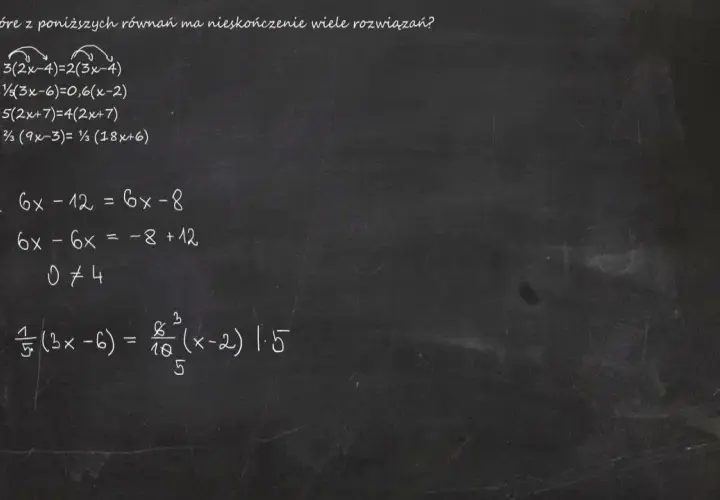 óre z poniższych równań ma nieskończenie wiele rozwiązań?
3(2x-4)=2(3x-4)
⅕(3x-6)=0,6(x-2)
5(2x+7)=4(2x+7)
⅔ (9x-3)= ⅓ (18x+6)
6x - 12 = 6x - 8
6x - 6x = -8 + 12
0 ≠ 4
1/5 (3x - 6) = 6/10 3/5 (x - 2) | · 5